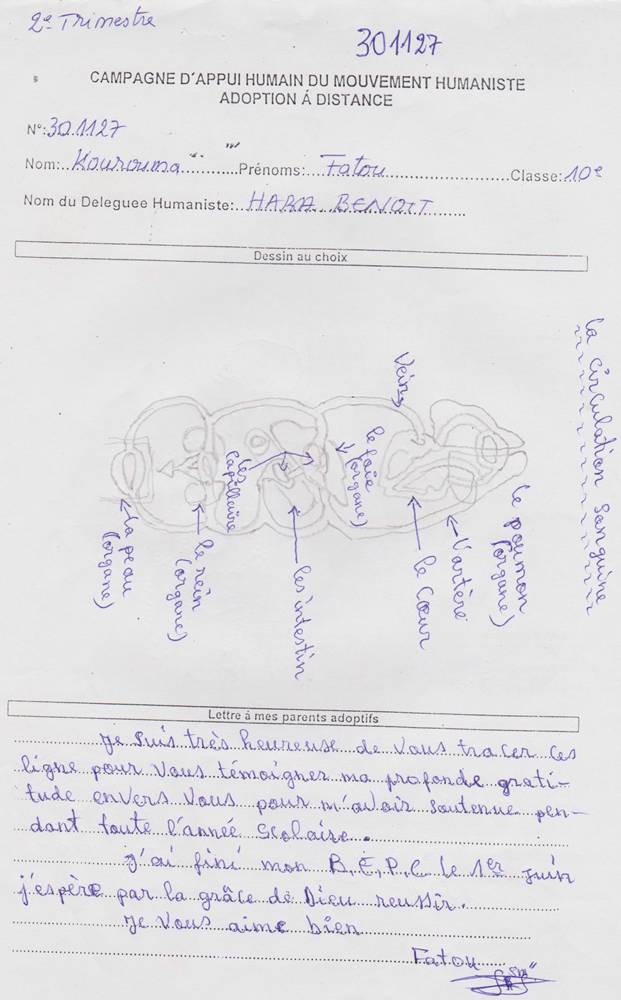 2e Trimestre
301127
CAMPAGNE D'APPUI HUMAIN DU MOUVEMENT HUMANISTE
ADOPTION Á DISTANCE
N°:301127
Nom:Kourouma Prénoms: Fatou Classe:10e
Nom du Deleguee Humaniste: HARA BENOIT
Dessin au choix
la circulation Sanguine
le poumon
(organe)
l'artère
le Cœur
Vein
le foie
(organe)
les intestin
les
Capillaire
le rein
(organe)
la peau
(organe)
Lettre à mes parents adoptifs
Je suis très heureuse de vous tracer ces
ligne pour vous témoigner ma profonde grati-
tude envers vous pour m'avoir soutenue pen-
dant toute l'année scolaise.
J'ai fini mon B.E.P.C le 1er Juin
j'espère par la grâce de Dieu reussir.
Je vous aime bien
Fatou